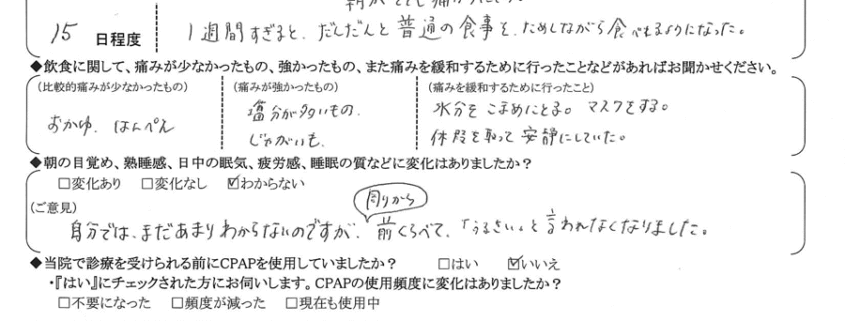 15 日程度
1週間すぎると、だんだんと普通の食事を、ためしながら食べれるようになった。
◆飲食に関して、痛みが少なかったもの、強かったもの、また痛みを緩和するために行ったことなどがあればお聞かせください。
(比較的痛みが少なかったもの) (痛みが強かったもの) (痛みを緩和するために行ったこと)
おかゆ、はんぺん
塩分が多いもの、
じゃがいも、
水分をこまめにとる。マスクをする。
休息を取って安静にしていた。
◆朝の目覚め、熟睡感、日中の眠気、疲労感、睡眠の質などに変化はありましたか?
□変化あり □変化なし ☑わからない
(ご意見)
周りから
自分では、まだあまりわからないのですが、前くらべて、「うるさい。」と言われなくなりました。
◆当院で診療を受けられる前にCPAPを使用していましたか? □はい ☑いいえ
・『はい』にチェックされた方にお伺いします。CPAPの使用頻度に変化はありましたか?
□不要になった □頻度が減った □現在も使用中